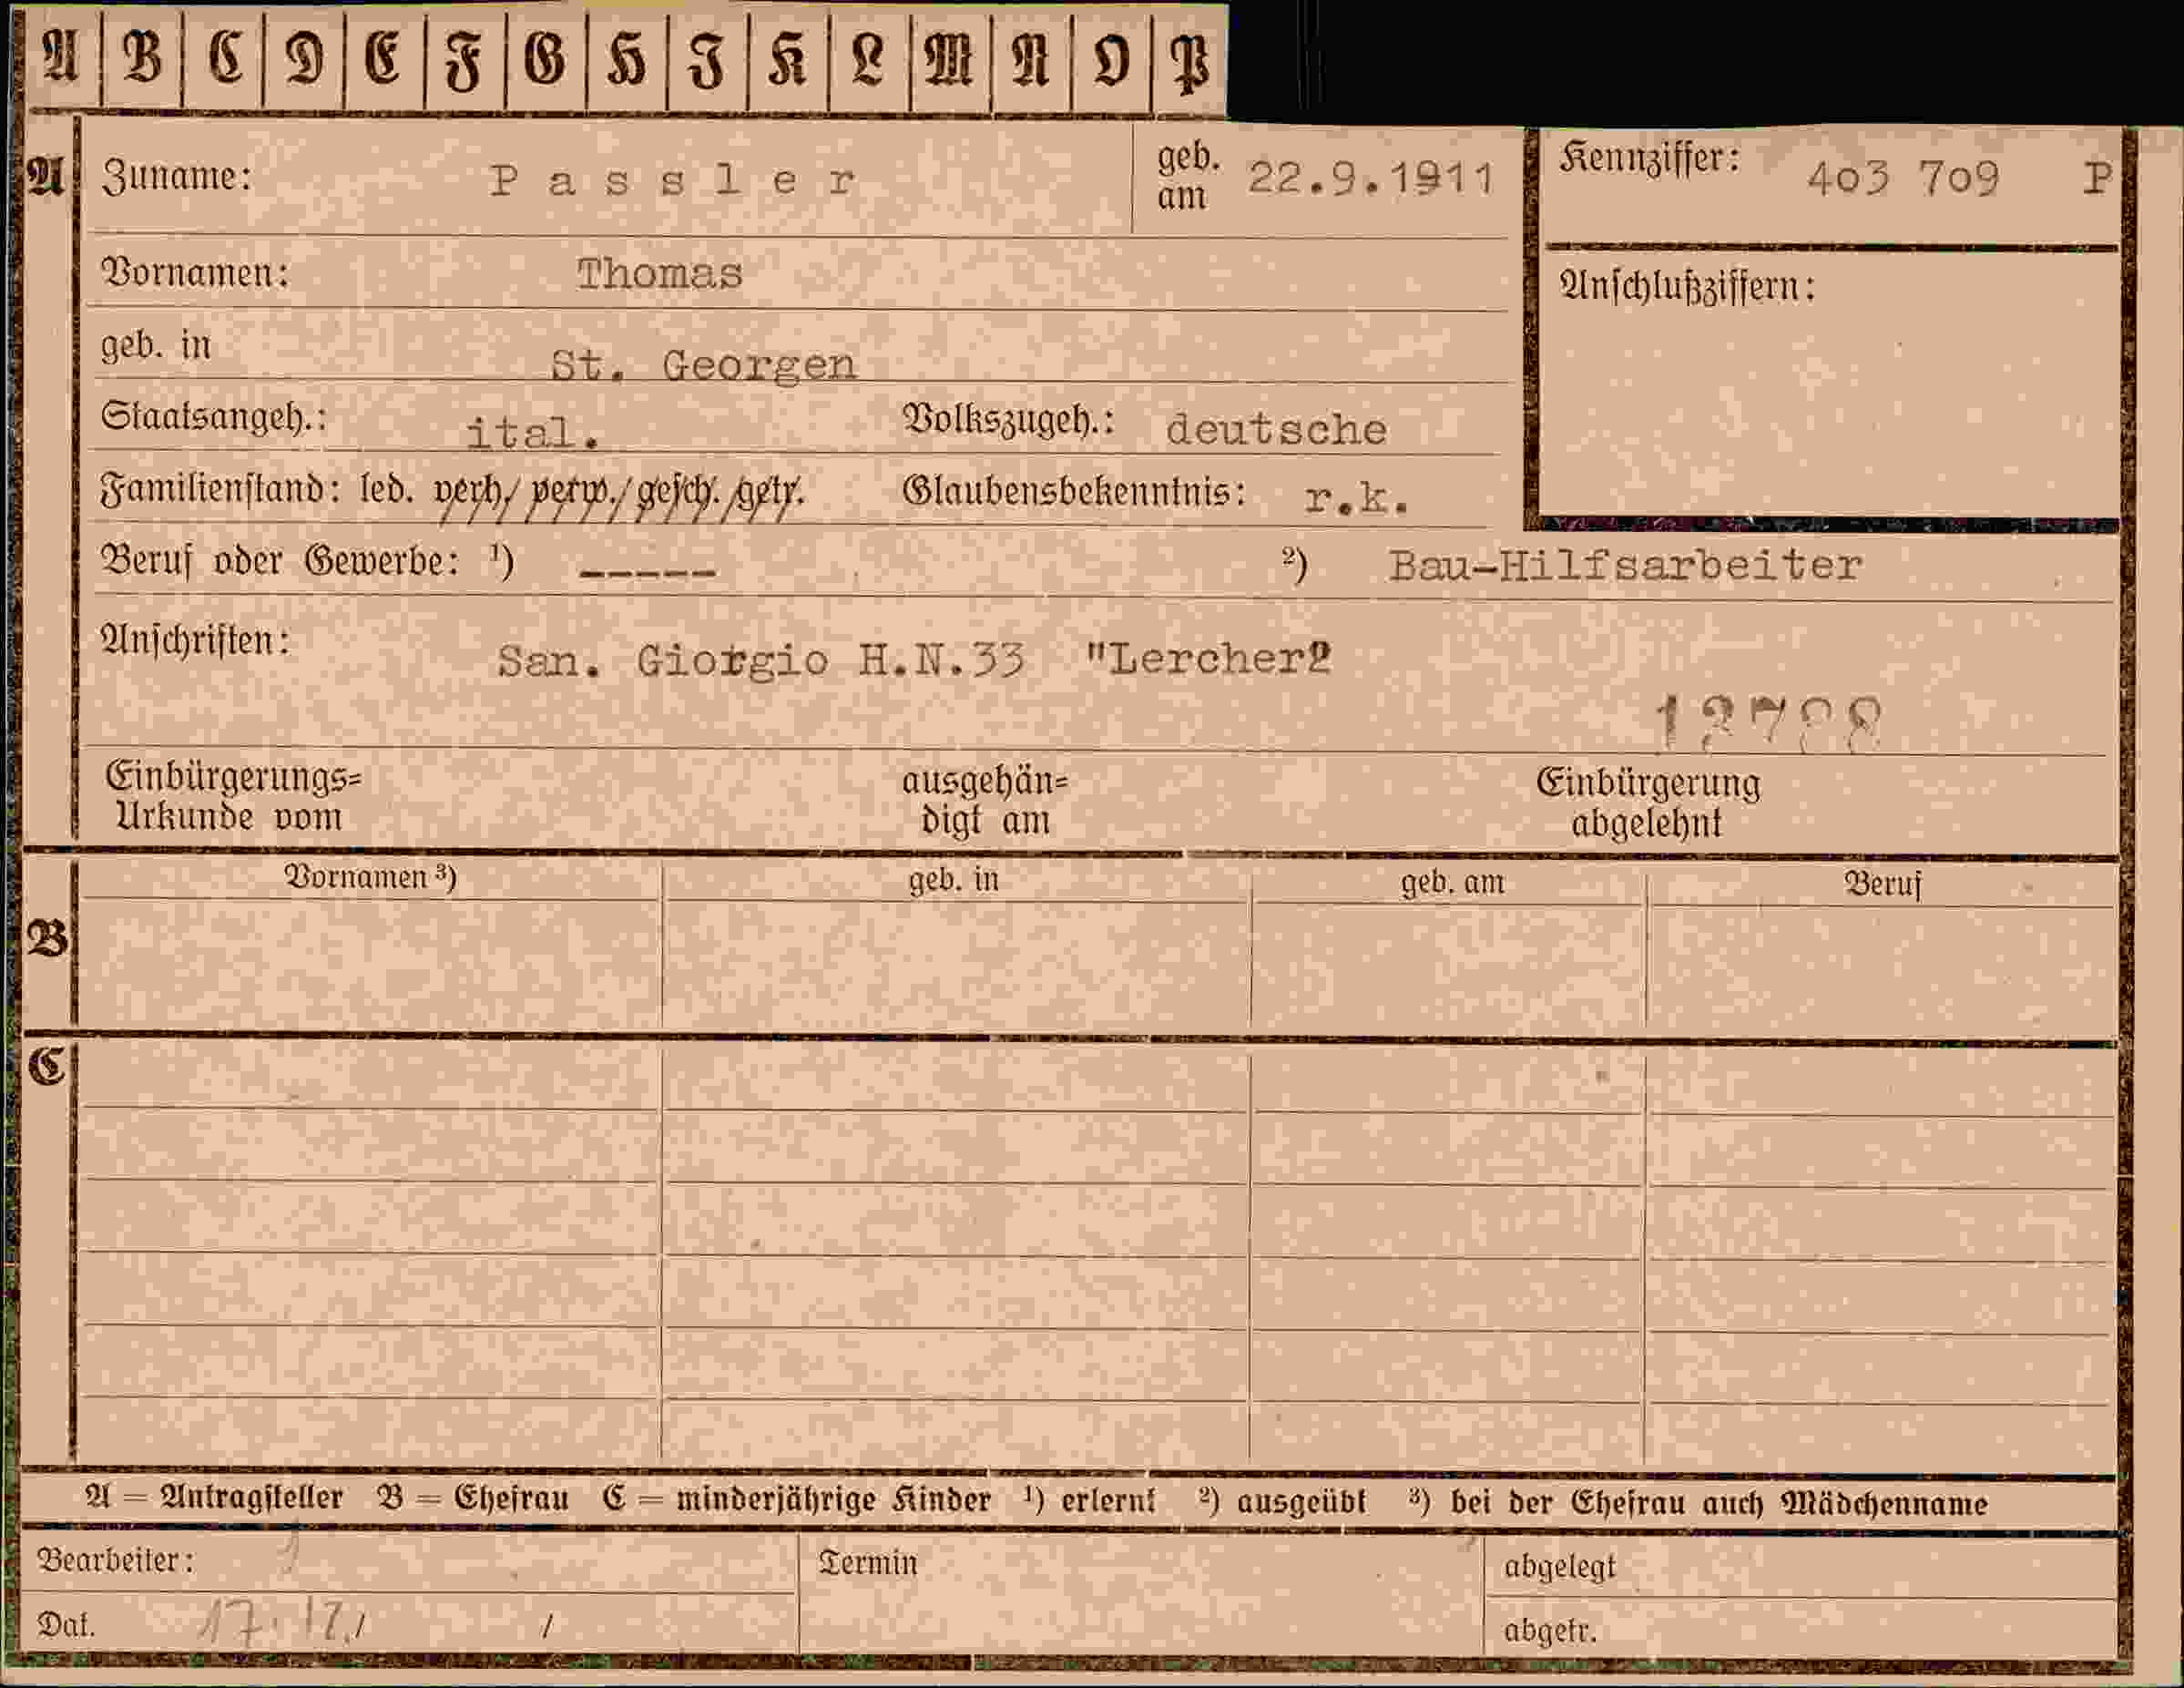 A B C D E F G H I K L M N O P
A Zuname: Passler geb. am 22.9.1911 Kennziffer: 403 709 P
Vornamen: Thomas Anschlußziffern:
geb. in St. Georgen
Staatsangeh.: ital. Volkszugeh.: deutsche
Familienstand: led. verh/ verw./ gesch. /getr. Glaubensbekenntnis: r.k.
Beruf oder Gewerbe: ¹) ----- ²) Bau-Hilfsarbeiter
Anschriften: San. Giorgio H.N.33 "Lercher2
Einbürgerungs= ausgehän= Einbürgerung
Urkunde vom digt am abgelehnt
Vornamen ³) geb. in geb. am Beruf
B
C
A = Antragsteller B = Ehefrau C = minderjährige Kinder ¹) erlernt ²) ausgeübt ³) bei der Ehefrau auch Mädchenname
Bearbeiter: Termin abgelegt
Dat. 17.12./ / abgetr.